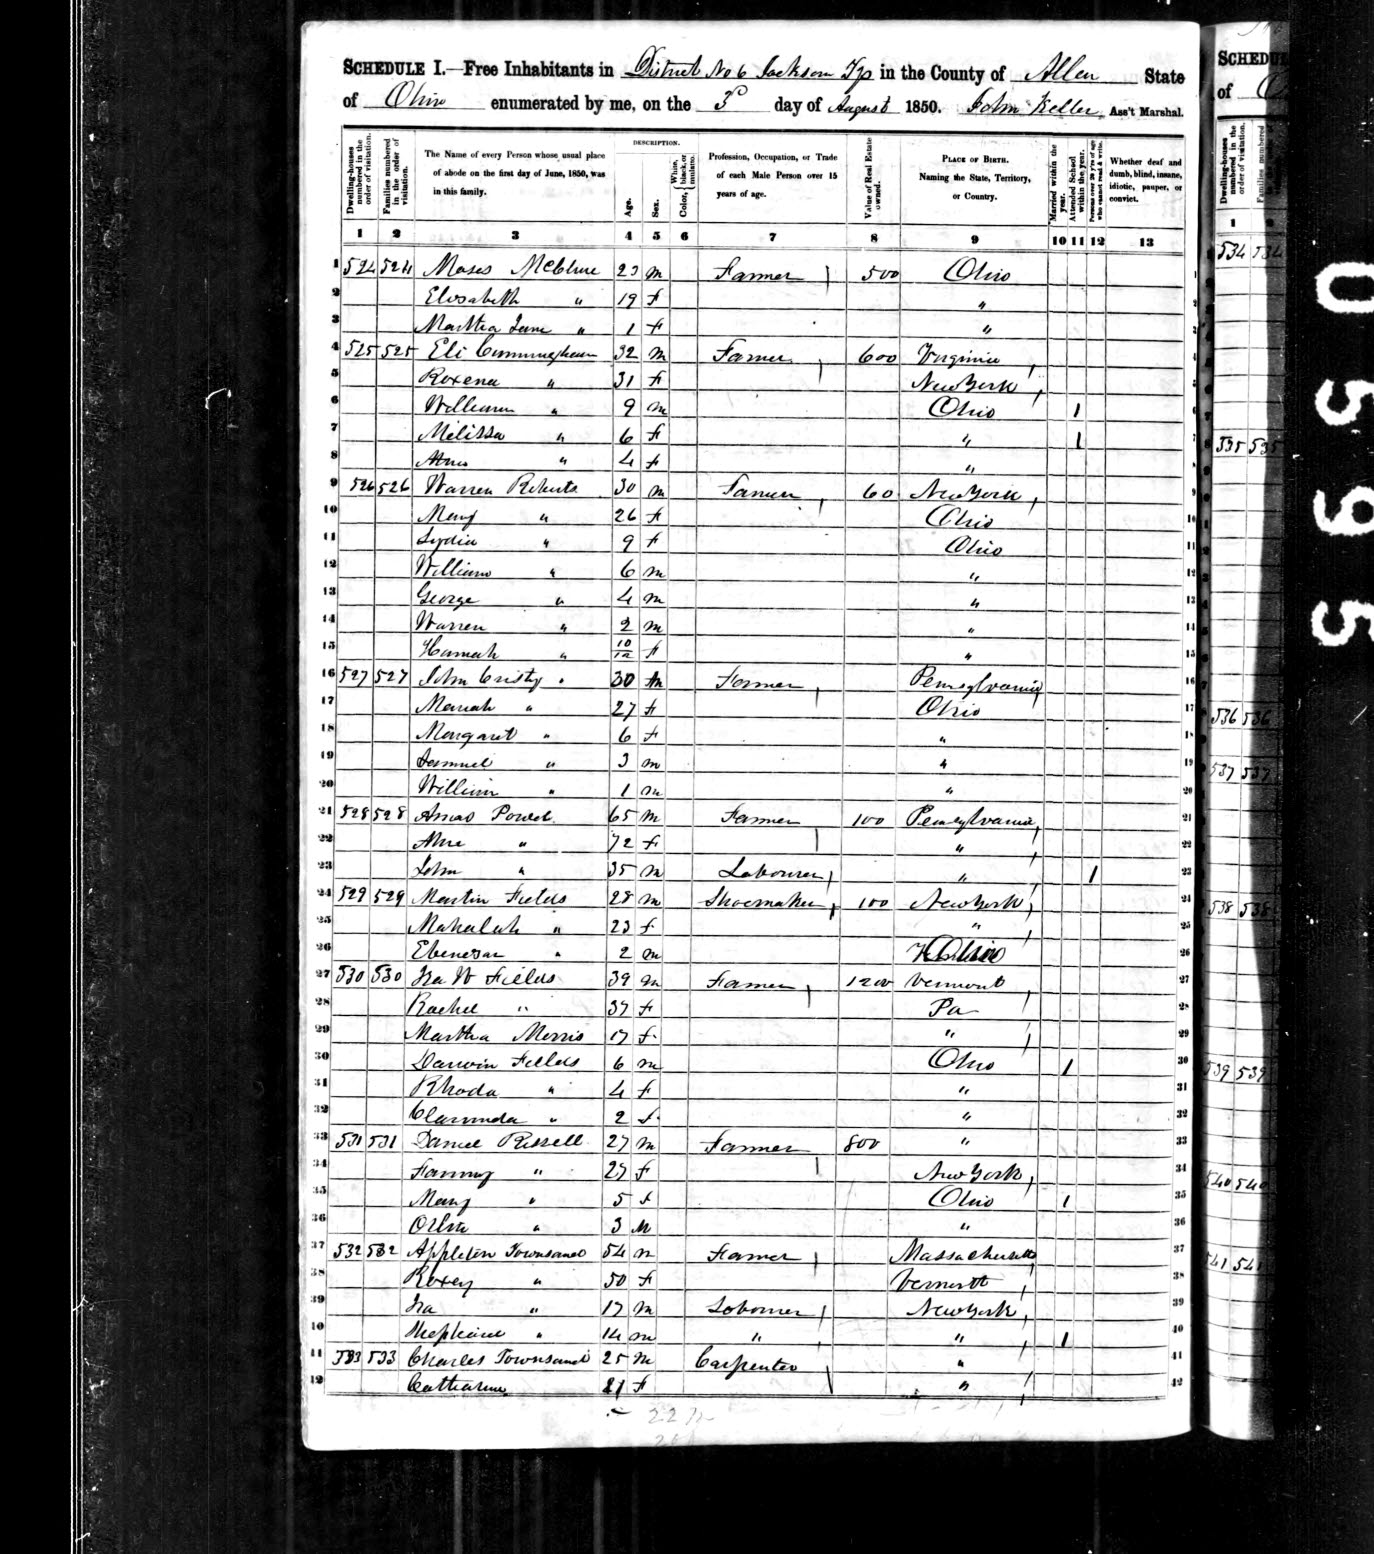 SCHEDULE I.—Free Inhabitants in District No 6 Jackson Tp in the County of Allen State
of Ohio enumerated by me, on the 3d day of August 1850. John Keller Ass't Marshal.
Dwelling-houses numbered in the order of visitation.
Families numbered in the order of visitation.
The Name of every Person whose usual place of abode on the first day of June, 1850, was in this family.
DESCRIPTION.
Age.
Sex.
Color, White, black, or mulatto.
Profession, Occupation, or Trade of each Male Person over 15 years of age.
Value of Real Estate owned.
PLACE OF BIRTH. Naming the State, Territory, or Country.
Married within the year.
Attended School within the year.
Persons over 20 y'rs of age who cannot read & write.
Whether deaf and dumb, blind, insane, idiotic, pauper, or convict.
1 2 3 4 5 6 7 8 9 10 11 12 13
1 524 524 Moses McClure 23 m Farmer 500 Ohio 1
2 Elisabeth " 19 f " 2
3 Martha Jane " 1 f " 3
4 525 525 Eli Cunningham 32 m Farmer 600 Virginia 4
5 Roxena " 31 f New York 5
6 William " 9 m Ohio 1 6
7 Melissa " 6 f " 1 7
8 " 4 f " 8
9 526 526 Warren Roberts 30 m Farmer 60 New York 9
10 Mary " 26 f Ohio 10
11 Lydia " 9 f Ohio 11
12 William " 6 m " 12
13 George " 4 m " 13
14 Warren " 2 m " 14
15 Hannah " 10/12 f " 15
16 527 527 John Cristy " 30 m Farmer Pennsylvania 16
17 Mariah " 27 f Ohio 17
18 Margaret " 6 f " 18
19 Samuel " 3 m " 19
20 William " 1 m " 20
21 528 528 Amos Powel 65 m Farmer 100 Pennsylvania 21
22 " 72 f " 22
23 John " 35 m Labourer " 1 23
24 529 529 Martin Fields 28 m Shoemaker 100 New York 24
25 Mahalah " 23 f " 25
26 Ebenezar " 2 m Ohio 26
27 530 530 Ira W Fields 39 m Farmer 1200 Vermont 27
28 Rachel " 37 f Pa 28
29 Martha Morris 17 f " 29
30 Darwin Fields 6 m Ohio 1 30
31 Rhoda " 4 f " 31
32 Clarinda " 2 f " 32
33 531 531 Daniel Russell 27 m Farmer 800 " 33
34 Fanny " 27 f New York 34
35 Mary " 5 f Ohio 1 35
36 " 3 M " 36
37 532 532 Appleton Townsand 54 m Farmer Massachusetts 37
38 Roxey " 50 f Vermont 38
39 Ira " 17 m Laborer New York 39
40 " 14 m " " 1 40
41 533 533 Charles Townsand 25 m Carpenter " 41
42 Catharine 21 f " 42
SCHEDUL
of
Dwelling-houses numbered in the order of visitation.
Families numbered
1
534 534
535 535
536 536
537 537
538 538
539 539
540 540
541 541
0595